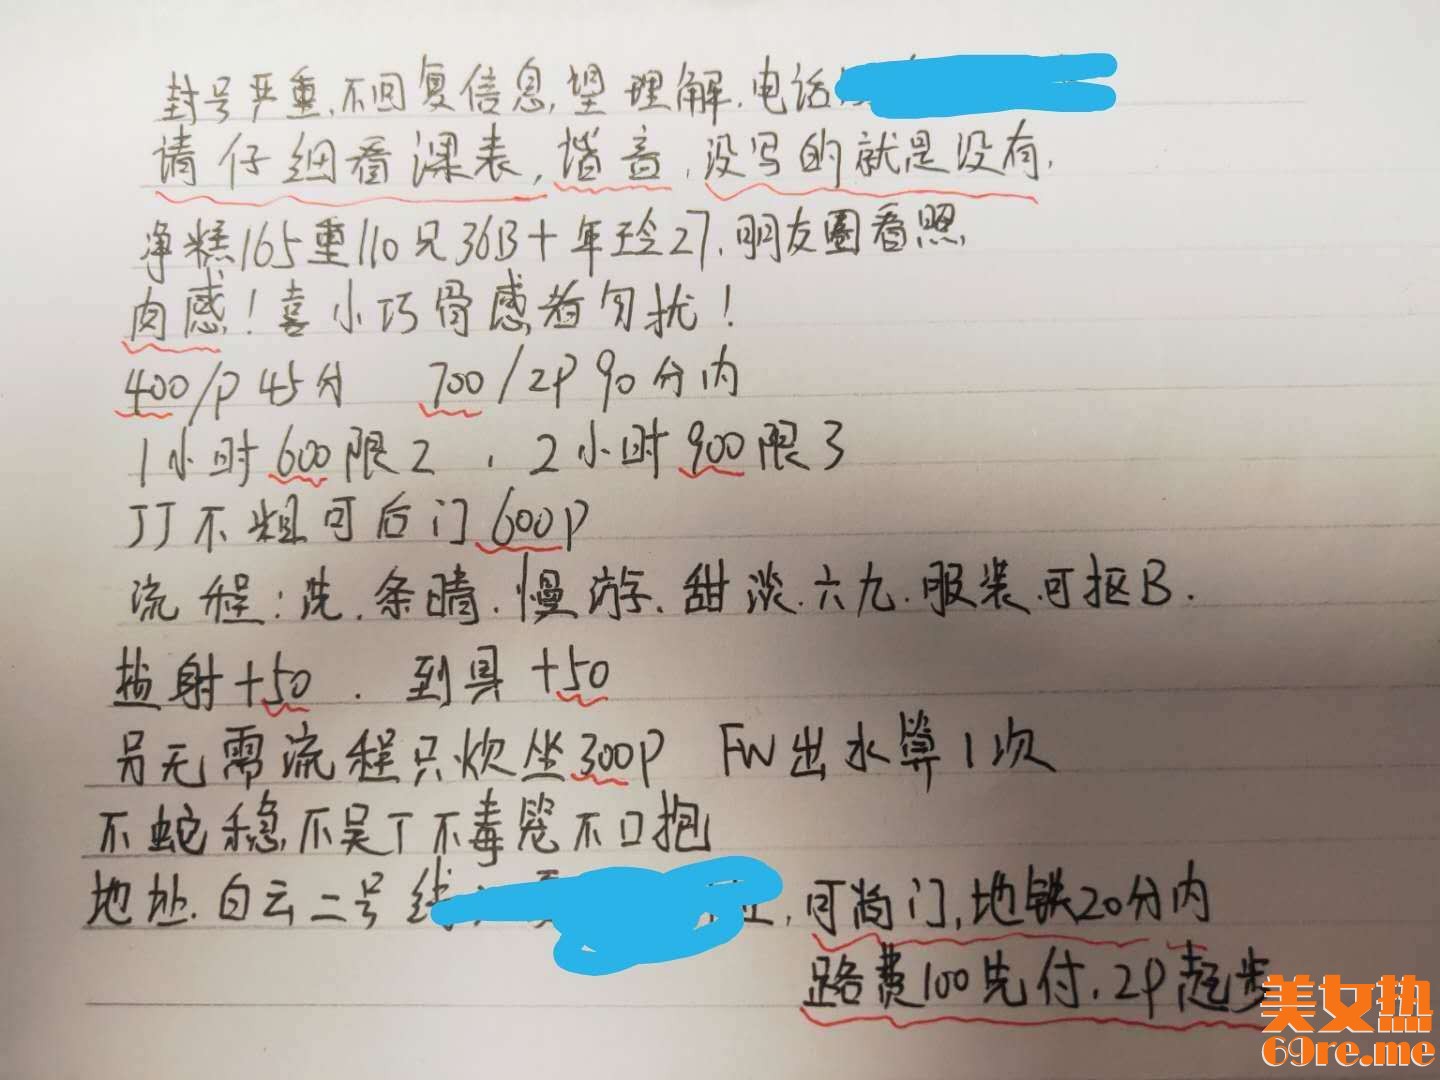 封号严重,不回复信息,望理解.电话
请仔细看课表,谐音,没写的就是没有.
净糕165重110兄36B+年玲27.朋友圈看照
肉感!喜小巧骨感者勿扰!
400/P 45分 700/2P 90分内
1小时600限2 . 2小时900限3
JJ不粗可后门600P
流程:洗.条晴.慢游.甜淡.六九.服装.可抠B.
盐射+50 . 到具+50
另无需流程只炊坐300P FW出水算1次
不蛇稳,不吴T不毒笼不口抱
地址.白云二号线 ,可尚门,地铁20分内
路费100先付.2P起步
美女热
69re.me